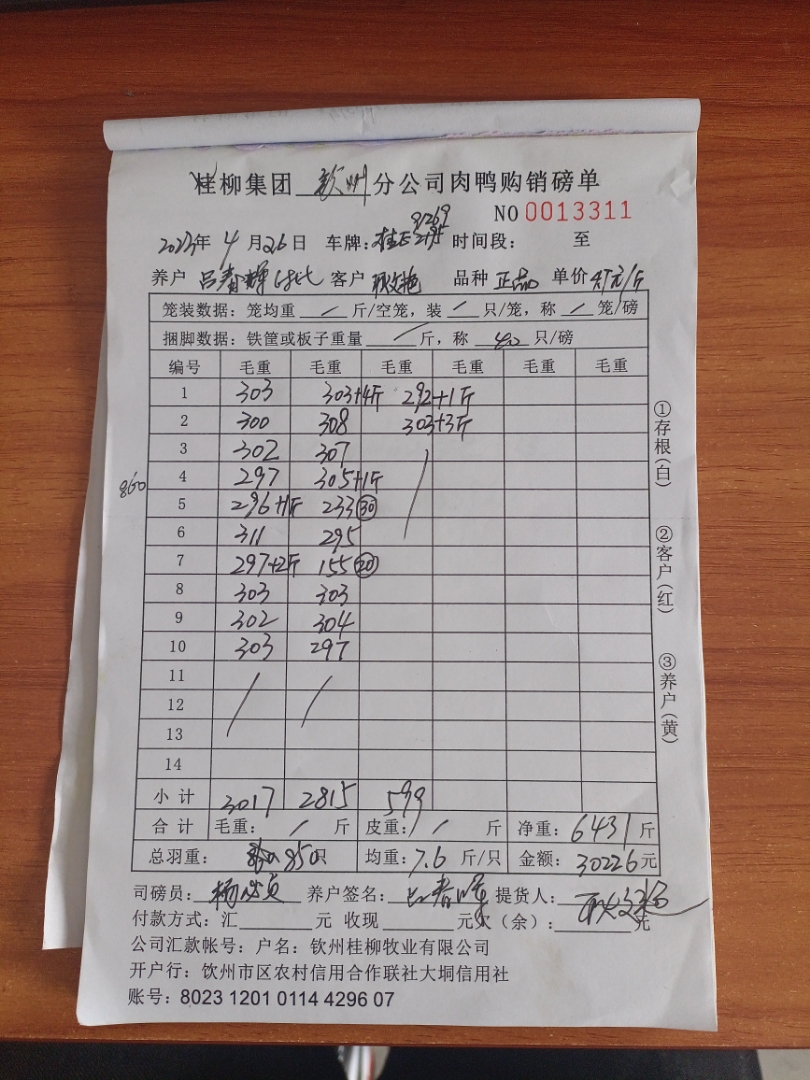 桂柳集团 钦州 分公司肉鸭购销磅单
NO 0013311
2023年 4 月 26 日 车牌: 时间段: 至
养户 吕春辉 客户 品种 正品 单价 4.7元/斤
笼装数据: 笼均重 / 斤/空笼, 装 / 只/笼, 称 / 笼/磅
捆脚数据: 铁筐或板子重量 / 斤, 称 40 只/磅
编号 毛重 毛重 毛重 毛重 毛重 毛重
1 303 303+4斤 292+1斤
2 300 308 303+3斤
3 302 307
860
4 297 305+1斤
5 296+1斤 233 30
6 311 295
7 297+2斤 155 20
8 303 303
9 302 304
10 303 297
11
12
13
14
小计 3017 2815 599
合计 毛重: / 斤 皮重: / 斤 净重: 6431 斤
总羽重: 850 只 均重: 7.6 斤/只 金额: 30226 元
司磅员: 养户签名: 提货人:
付款方式: 汇 元 收现 元欠(余): 元
公司汇款帐号: 户名: 钦州桂柳牧业有限公司
开户行: 钦州市区农村信用合作联社大垌信用社
账号: 8023 1201 0114 4296 07
①存根(白)
②客户(红)
③养户(黄)